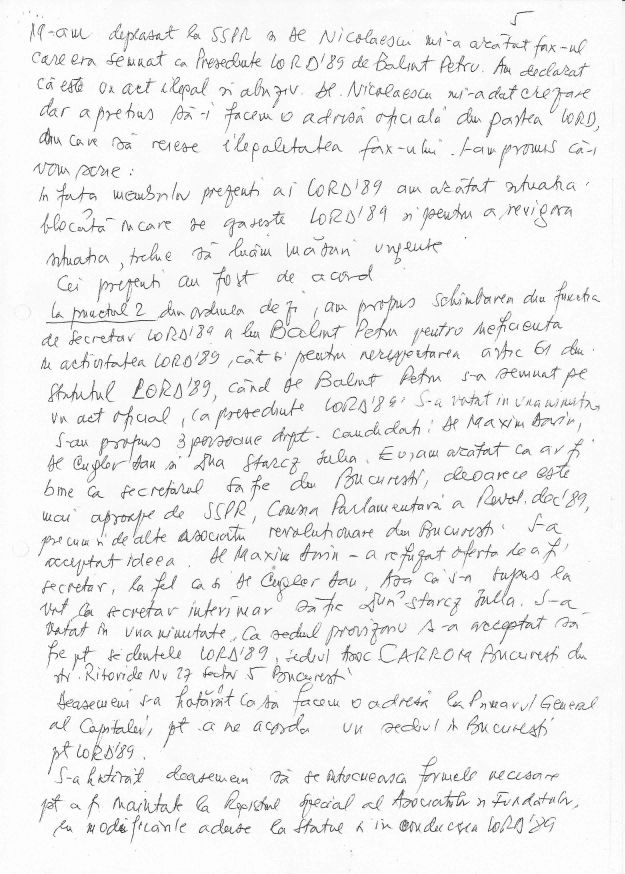 5
M-am deplasat la SSPR și Dl Nicolaescu mi-a arătat fax-ul
care era semnat ca Președinte LORD'89 de Balint Petru. Am declarat
că este un act ilegal și abuziv. Dl. Nicolaescu mi-a dat crezare
dar a pretins să-i facem o adresă oficială din partea LORD,
din care să reiese ilegalitatea fax-ului. I-am promis că-i
vom scrie:
In fața membrilor prezenți ai LORD'89 am arătat situația
blocată în care se găsește LORD'89 și pentru a revigora
situația, trebue să luăm măsuri urgente.
Cei prezenți au fost de acord
La punctul 2 din ordinea de zi, am propus schimbarea din funcția
de secretar LORD'89 a lui Balint Petru pentru ineficiența
în activitatea LORD'89, cât și pentru nerespectarea artic 61 din
statutul LORD'89, când Dl Balint Petru s-a semnat pe
un act oficial, ca președinte LORD'89. S-a votat în unanimitate
S-au propus 3 persoane drept candidați: Dl Maxim Sorin,
Dl Cugler Dan și Dna Starcz Iulia. Eu am arătat că ar fi
bine ca secretarul să fie din București, deoarece este
mai aproape de SSPR, Comisia Parlamentară a Revol. dec'89,
precum și de alte asociații revoluționare din București. S-a
acceptat ideea. Dl Maxim Sorin - a refuzat oferta de a fi
secretar, la fel ca și Dl Cugler Dan. Așa că s-a supus la
vot ca secretar interimar să fie Dna Starcz Iulia. S-a
votat în unanimitate. Ca sediul provizoriu s-a acceptat să
fie pt ședințele LORD'89, sediul Asoc CARROM București din
str. Ritoride Nr 27 sector 5 București
Deasemeni s-a hotărât ca să facem o adresă la Primarul General
al Capitalei, pt. a ne acorda un sediul în București
pt LORD'89.
S-a hotărât deasemeni să se întocmească formele necesare
pt a fi înaintate la Registrul special al Asociațiilor și Fundațiilor,
cu modificările aduse la statut și în conducerea LORD'89